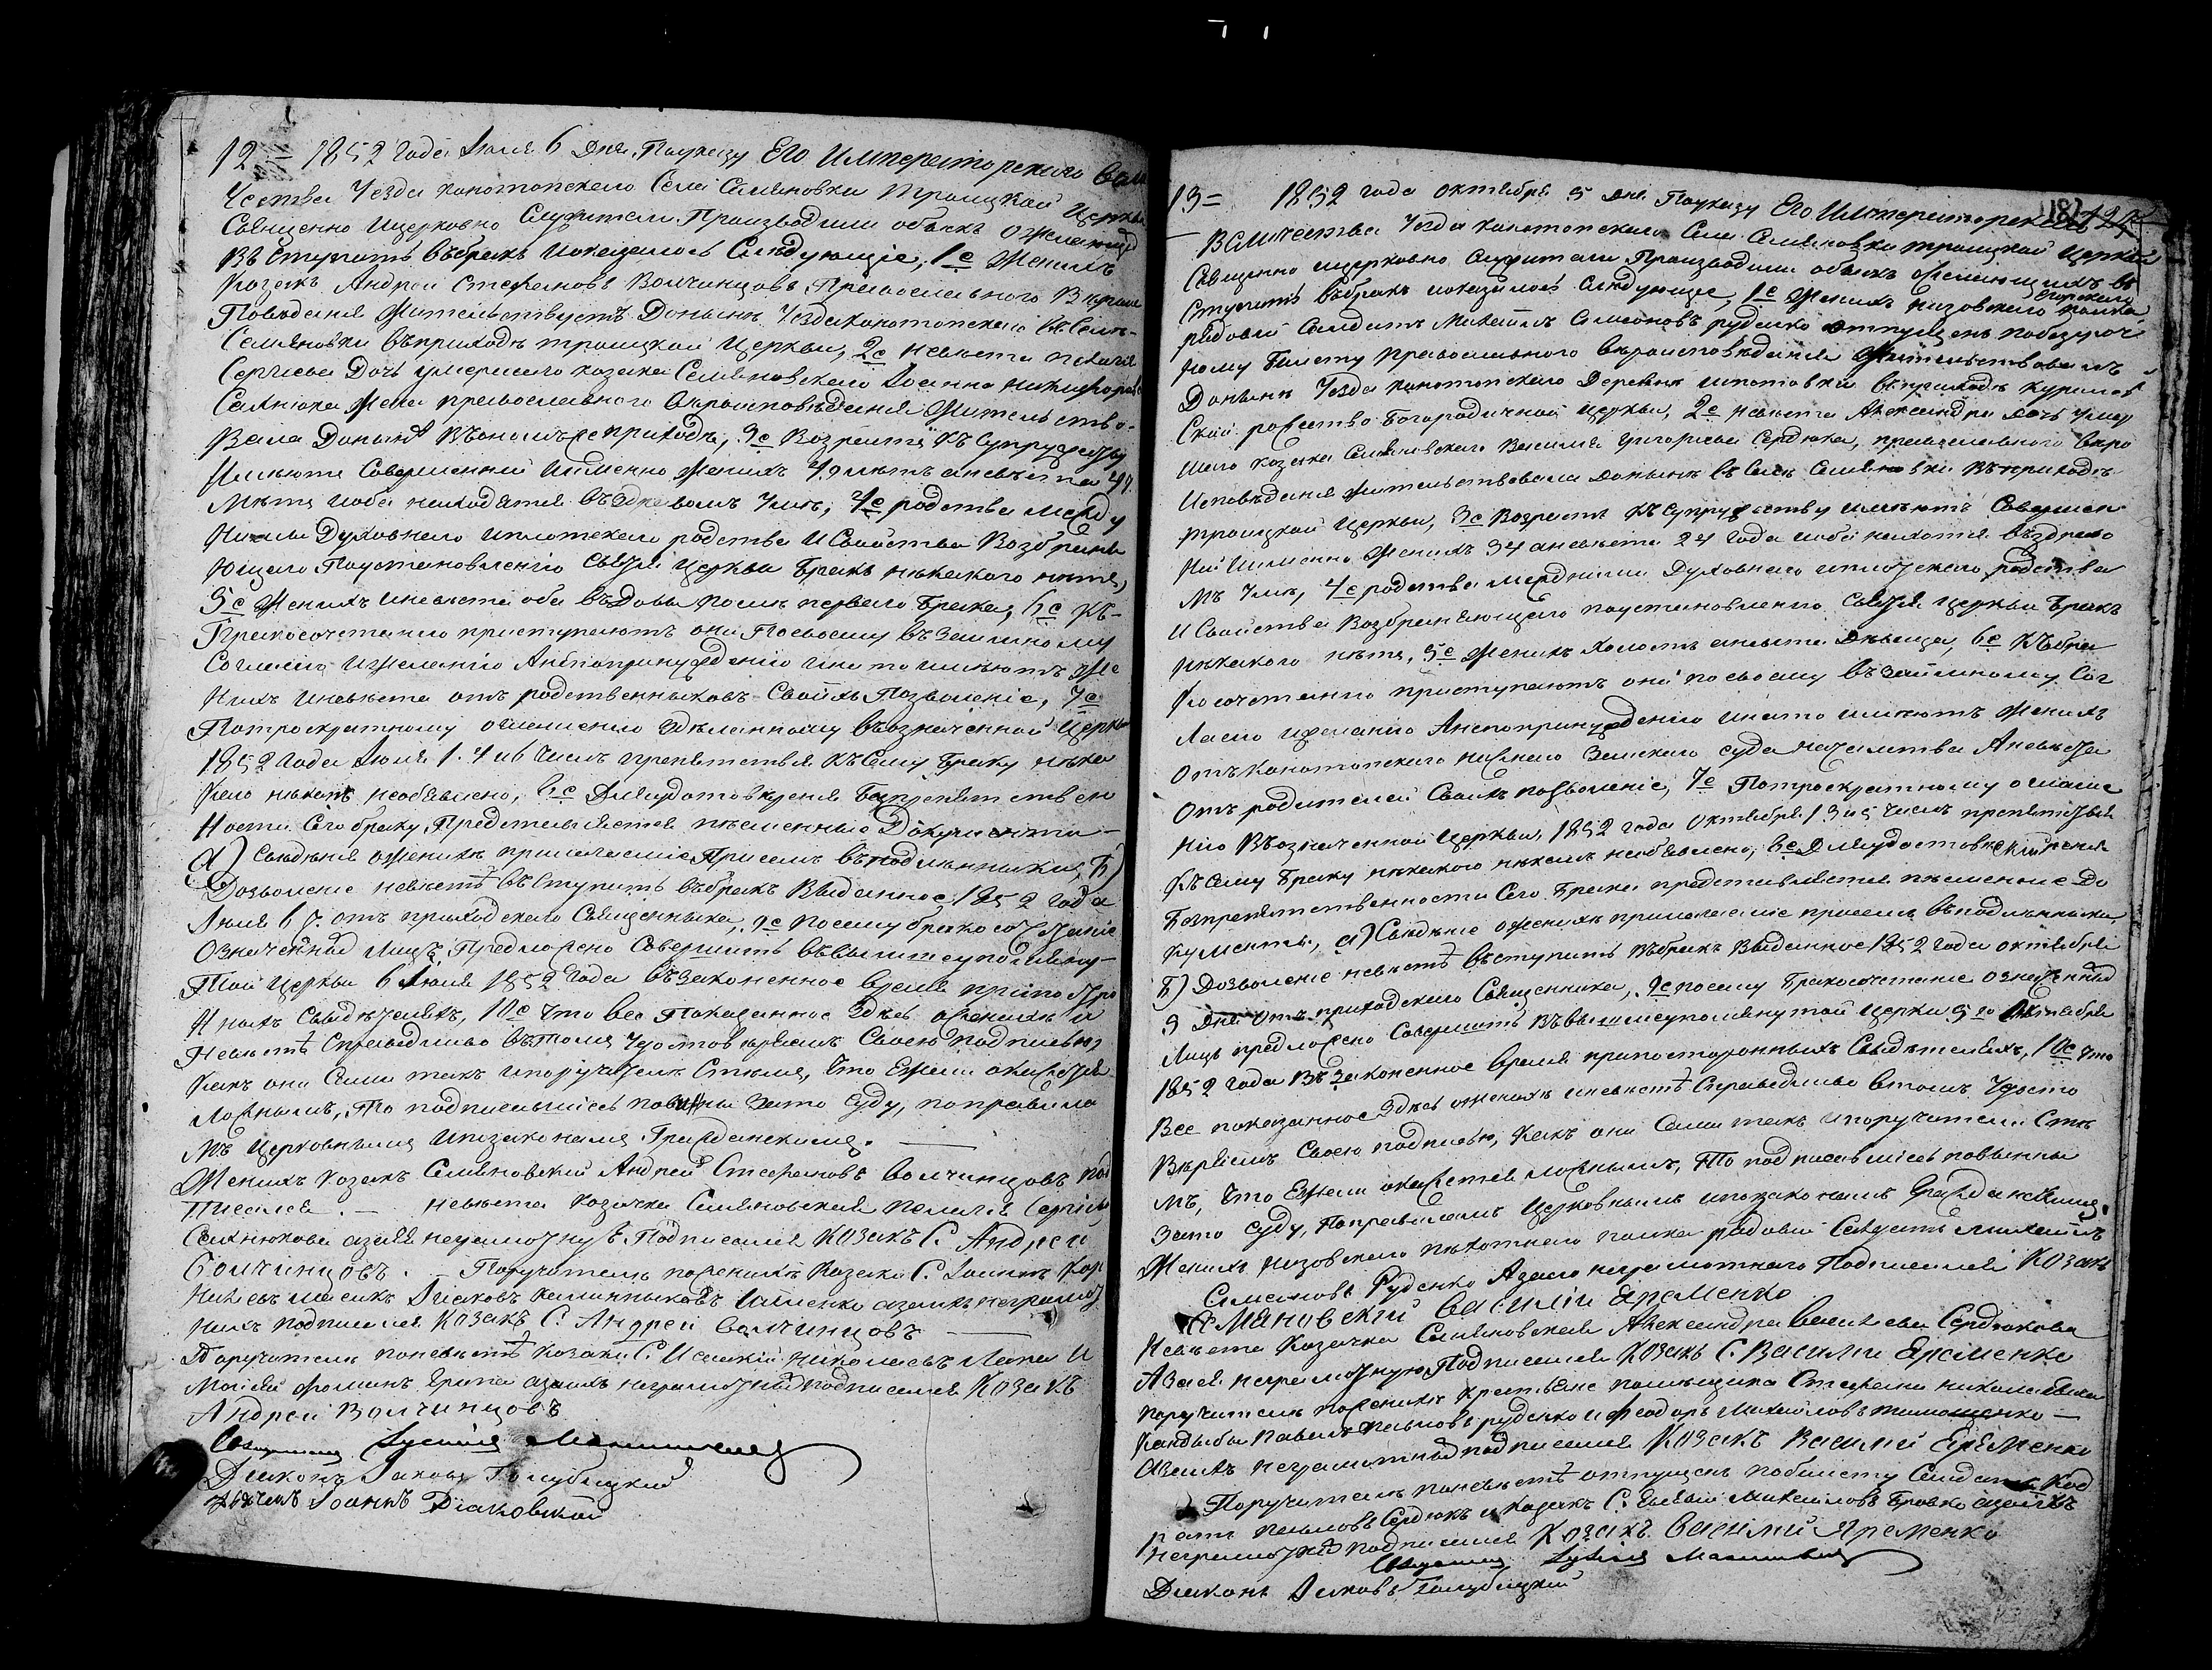 12 1852 года Июля 6 Дня. По указу Его Императорского Вели
чества Уезда конотопского Села Семяновки Троицкой Церкви
Священно Ицерковно Служители Производили обыскъ ожелающихъ
Въ ступить въ бракъ и оказалось Следующее, 1е Женихъ
Козакъ Андрей Стефановъ Волчинцовъ Православного Вероис
Поведания Жительствуетъ Донынѣ Уезда конотопского въ Селѣ
Семяновки въ приходѣ троицкой Церкви, 2е невеста Пелагия
Сергиева Дочь умершего козака Семяновского Иоанна Никифорова
Сахнюка Жена православного вероисповедания Жительство-
Вала Донынѣ Въ ономъ же приходѣ, 3е Возраста Къ Супружеству
Имѣютъ Совершенний Именно Женихъ 49 летъ а невеста 47
Лѣтъ и оба находятся въ здравомъ Уме, 4е родства между
Ними Духовного и плотского родства И Свойства Возбраня
ющего По установлению Святой Церкви Бракъ никакого нетъ,
5е Женихъ и невеста оба въ Довы после первого Брака, 6е Къ
Бракосочетанию приступаютъ они По своему въ заимному
Согласию и Желанию А не по принуждению и на то имѣютъ Же
нихъ и невеста отъ родственниковъ Своихъ Позволение, 7е
По троекратному оглашению зделанному въ означенной Церкви
1852 Года Июля 1. 4 и 6 Числъ препятствия Къ Сему Браку ника
кого никемъ необъявлено, 8е Для удостоверения Безпрепятствен
ности Сего браку, Представляется писменные Документы
А) Сведения о Женихѣ прилагается При семъ въ подлинникѣ, Б)
Дозволение невесте въ Ступить въ бракъ Выданное 1852 Года
Июля 6 д. отъ приходского Священника, 9е посему бракосочетание
означенныхъ Лицъ Предложено Совершить въ вышеупомяну-
той Церкви 6 Июля 1852 Года въ законенное время при посторо
нныхъ Свидетеляхъ, 10е Что все Показанное Здесь о женихе и
Невесте Справедливо въ томъ Удостоверяемъ Своею подписью,
какъ они Сами такъ и поручители Стемъ, Что Ежели окажется
Ложнымъ, То подписавшиеся повинны зато Суду, по правила
мъ Церковнымъ И по законамъ Гражданскимъ.
Женихъ Козакъ Семяновский Андрей Стефановъ Волчинцовъ под
писался. — невеста козачка Семяновская Пелагия Сергиева
Сахнюкова азаея неграмотну Подписался Козакъ С. Андрей
Волчинцовъ. — Поручители по женихѣ Козаки С. Иоаннъ Кор
ниловъ Иаковъ азаихъ неграмот
нихъ подписался Козакъ С. Андрей Волчинцовъ
Поручители по невестѣ Козаки С. Николаевъ И
Моисей Фоминъ азаихъ неграмотныхъ подписался Козакъ
Андрей Волчинцовъ
Священникъ
Диаконъ Иаковъ Голубицкий
Иоаннъ Дияковский
13= 1852 года октября 5 дня По указу Его Императорского
Величества Уезда конотопского Села Семяновки троицкой Церкви
Священно ицерковно Служители Производили обыскъ желающихъ въ
Ступить въ бракъ и оказалось Следующее, 1е Женихъ низовского Егерского полка
рядовий Салдатъ Михаилъ Самсоновъ руденко отпущенъ по безсроч
ному Билету православного вероисповедания Жительствовалъ
Донынѣ Уезда конотопского Деревни въ приходѣ
Ской рожество Богородичной Церкви, 2е невеста Александра дочь умер
шого козака Семяновского Василия Григорьева Сердюка, православного веро
Исповедания Жительствовала донынѣ въ Селѣ Семяновки въ приходѣ
троицкой Церкви, 3е Возраста Къ Супружеству имѣютъ Совершен
ний Именно Женихъ 34 а невеста 24 Года и оба находятся въ здраво
мъ Уме, 4е родства между ними Духовного и плотского родства
И Свойства Возбраняющего по установлению Святой Церкви Бракъ
никакого нетъ, 5е Женихъ холостъ а невеста Девица, 6е Къ бра
косочетанию приступаютъ они по своему въ заимному Сог
ласию и желанию А не по принуждению и на то имѣютъ Женихъ
отъ конотопского нижнего Земского суда начальства А невеста
отъ родителей Своихъ позволение, 7е По троекратному оглаше
нию Въ означенной Церкви, 1852 года октября 1 3 и 5 числъ препятствия
Къ Сему Браку никакого никемъ необъявлено, 8е Для удостоверения
Безпрепятственности Сего Брака представляется писменные До
кументы, а) Сведение о женихѣ прилагается при семъ въ подлинникѣ
Б) Дозволение невестѣ въ ступить Въ бракъ Выданное 1852 года октября
5 дня отъ приходского Священника, 9е посему Бракосочетание означенныхъ
Лицъ предложено Совершить Въ вышеупомянутой церкви 5 го Октября
1852 года Въ Законенное время при посторонныхъ Свидетеляхъ, 10е что
Все показанное Здесь о женихѣ и невестѣ Справедливо в томъ Удосто
веряемъ Своею подписью, Какъ они Сами такъ и поручители Сте
мъ, Что Ежели окажется ложнымъ, То подписавшиесь повинны
Зато Суду, По правиламъ Церковнымъ и по законамъ Гражданскимъ.
Женихъ низовского пехотного полка рядовий Салдатъ Михаилъ
Самсоновъ Руденко Азаего неграмотного Подписался Козакъ
Семановский Василий Яременко
Невеста Козачка Семяновская Александра Васильева Сердюкова
Азаея неграмотную Подписался Козакъ С. Василий Яременко
Поручители по женихѣ крестьяне помещика Стефана Николаевича
Кандыбы Павелъ руденко и Феодоръ Михайловъ тимошенко —
азаихъ неграмотныхъ подписался Козакъ Василий Ерѣменко
Поручители по невестѣ отпущенъ по билету Салдатъ Код
ратъ Павловъ Сердюкъ и козакъ С. Михайловъ Бровко азаихъ
неграмотныхъ подписался Козакъ Василий Яременко
Священникъ
Диаконъ Иаковъ Голубицкий